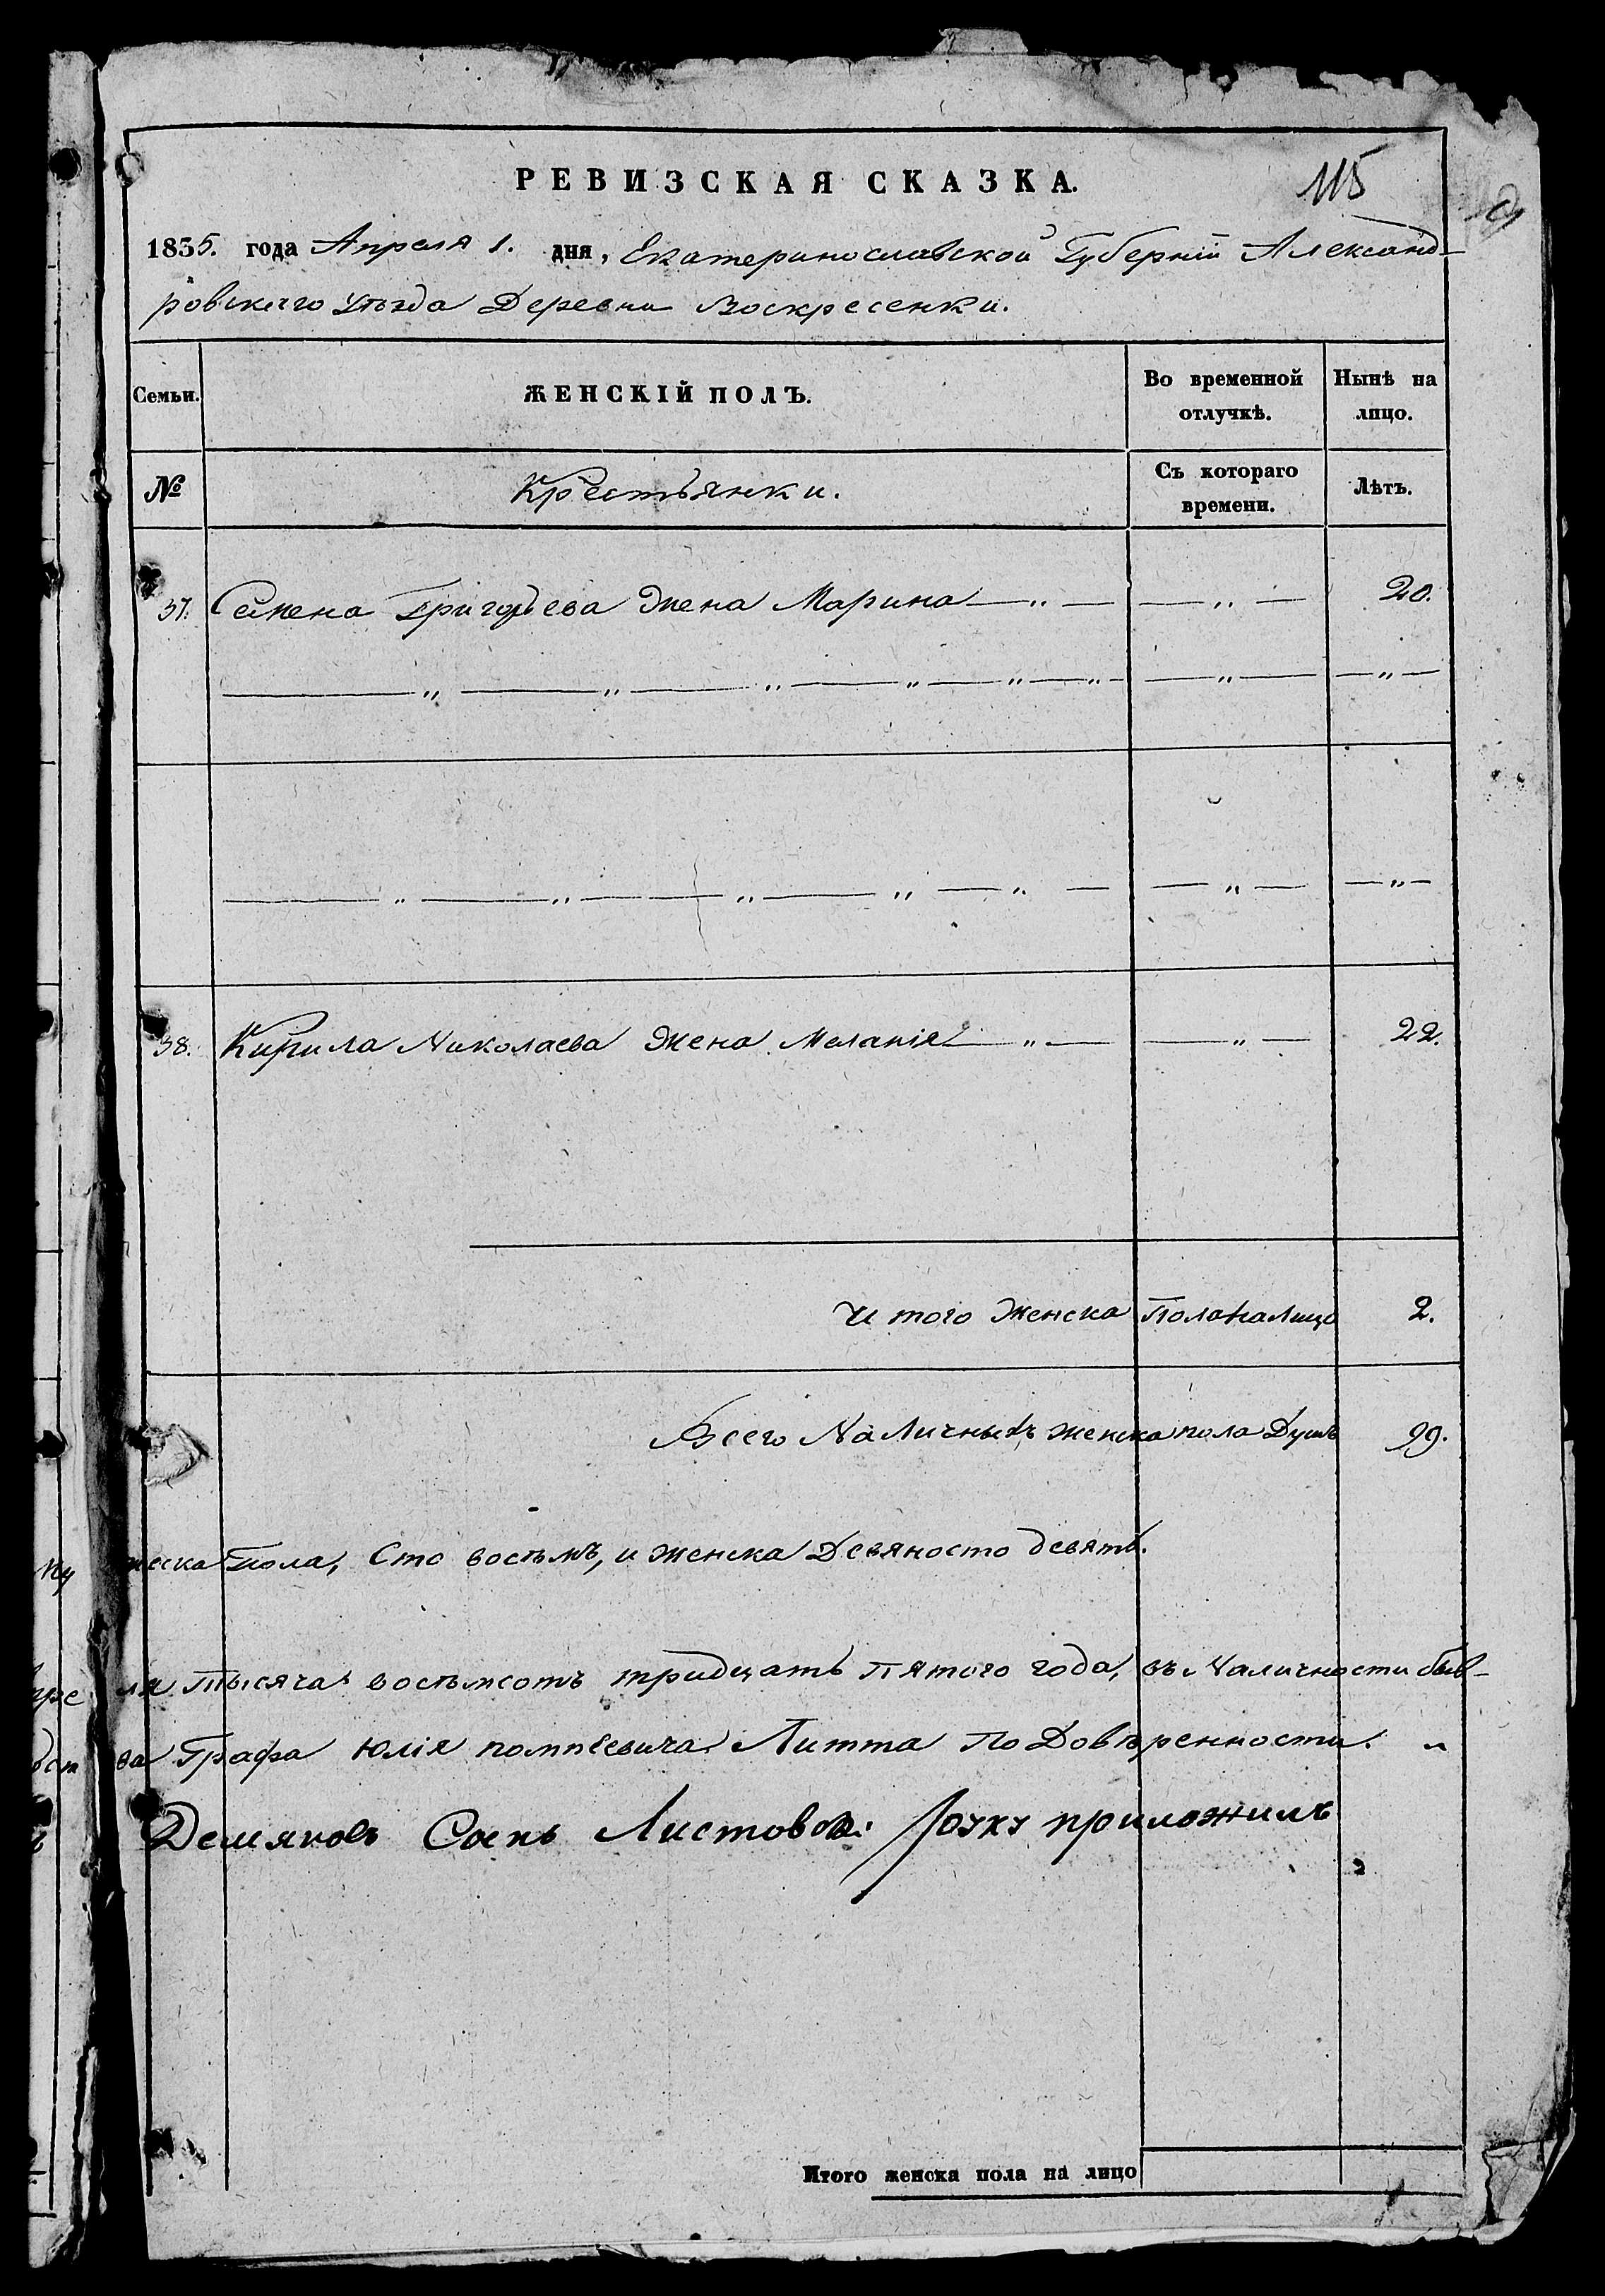 115
РЕВИЗСКАЯ СКАЗКА.
1835. года Апреля 1. дня, Екатеринославской Губернїи Александ-
ровскаго уѣзда Деревни Воскресенки.
Семьи. ЖЕНСКІЙ ПОЛЪ. Во временной отлучкѣ. Нынѣ на лицо.
№ Крестьянки. Съ котораго времени. Лѣтъ.
37. Семена Григорьева жена Марина — " — — " — 20.
38. Кирила Николаева жена Меланія — " — — " — 22.
И того женска Пола на Лицо 2.
Всего На Личныхъ женска пола Душъ 99.
му жеска Пола, Сто восьмъ, и женска Девяносто девять.
ля тысяча восьмсотъ тридцать пятого года, въ Наличности быв-
ва Графа Юлія помпеевича Литта По Довѣренности.
Листовой руку приложилъ
Итого женска пола на лицо